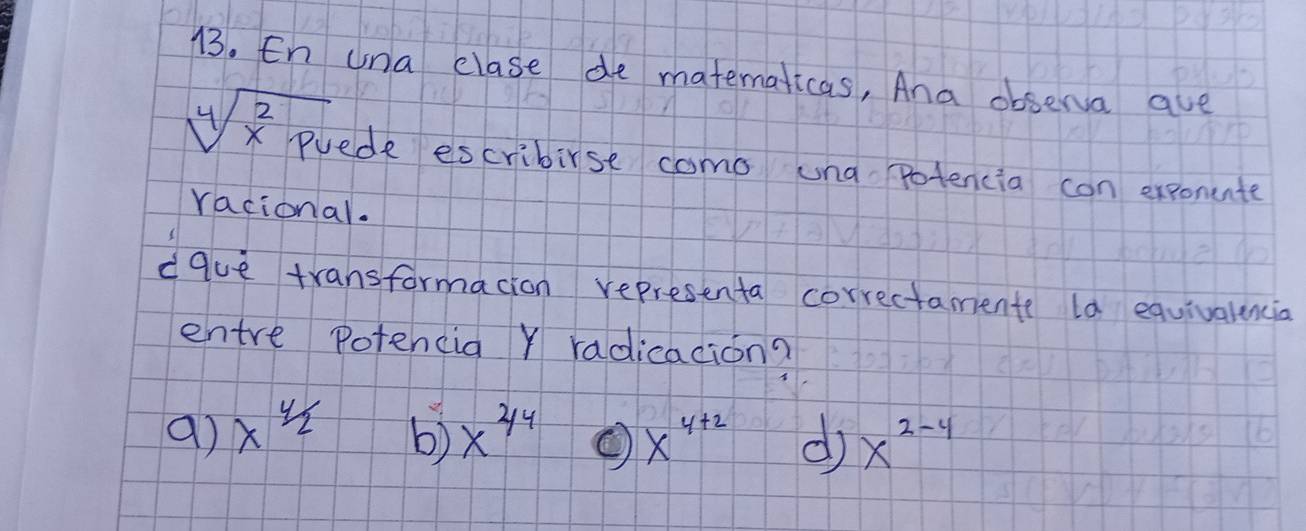 13. En una clase de matematicas, Ana observa que
∜x² puede escribirse como una potencia con exponente
racional.
¿què transformacion representa correctamente la equivalencia
entre Potencia y radicación?
a) x^4/2 b) x^2/4 c) x^4+2 d) x^2-4